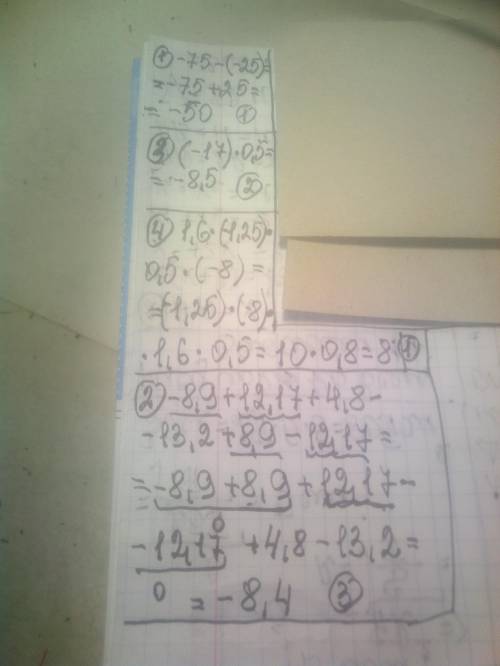 ① -75-(-25)=
=-75+25=
=-50 ①
③ (-17)·0,5=
=-8,5 ②
④ 1,6·(-1,25)·
0,5·(-8)=
=(-1,25)·(-8)·
·1,6·0,5=10·0,8=8 ①
② -8,9+12,17+4,8-
-13,2+8,9-12,17=
=-8,9+8,9+12,17-
0
-12,17+4,8-13,2=
0 =-8,4 ③